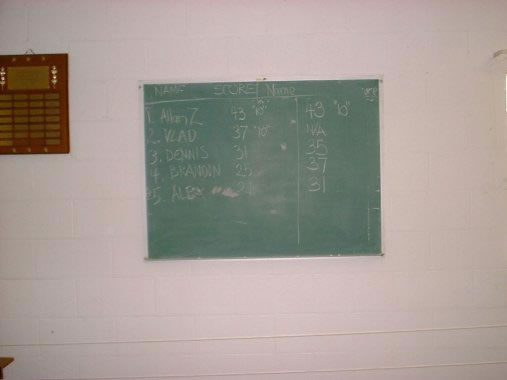 NAME SCORE1 Name
1. Allan Z 43 "10" 43 "10"
2. VLAD 37 "10" N/A
3. DENNIS 31 35
4. BRANDON 25 37
5. ALEX 31